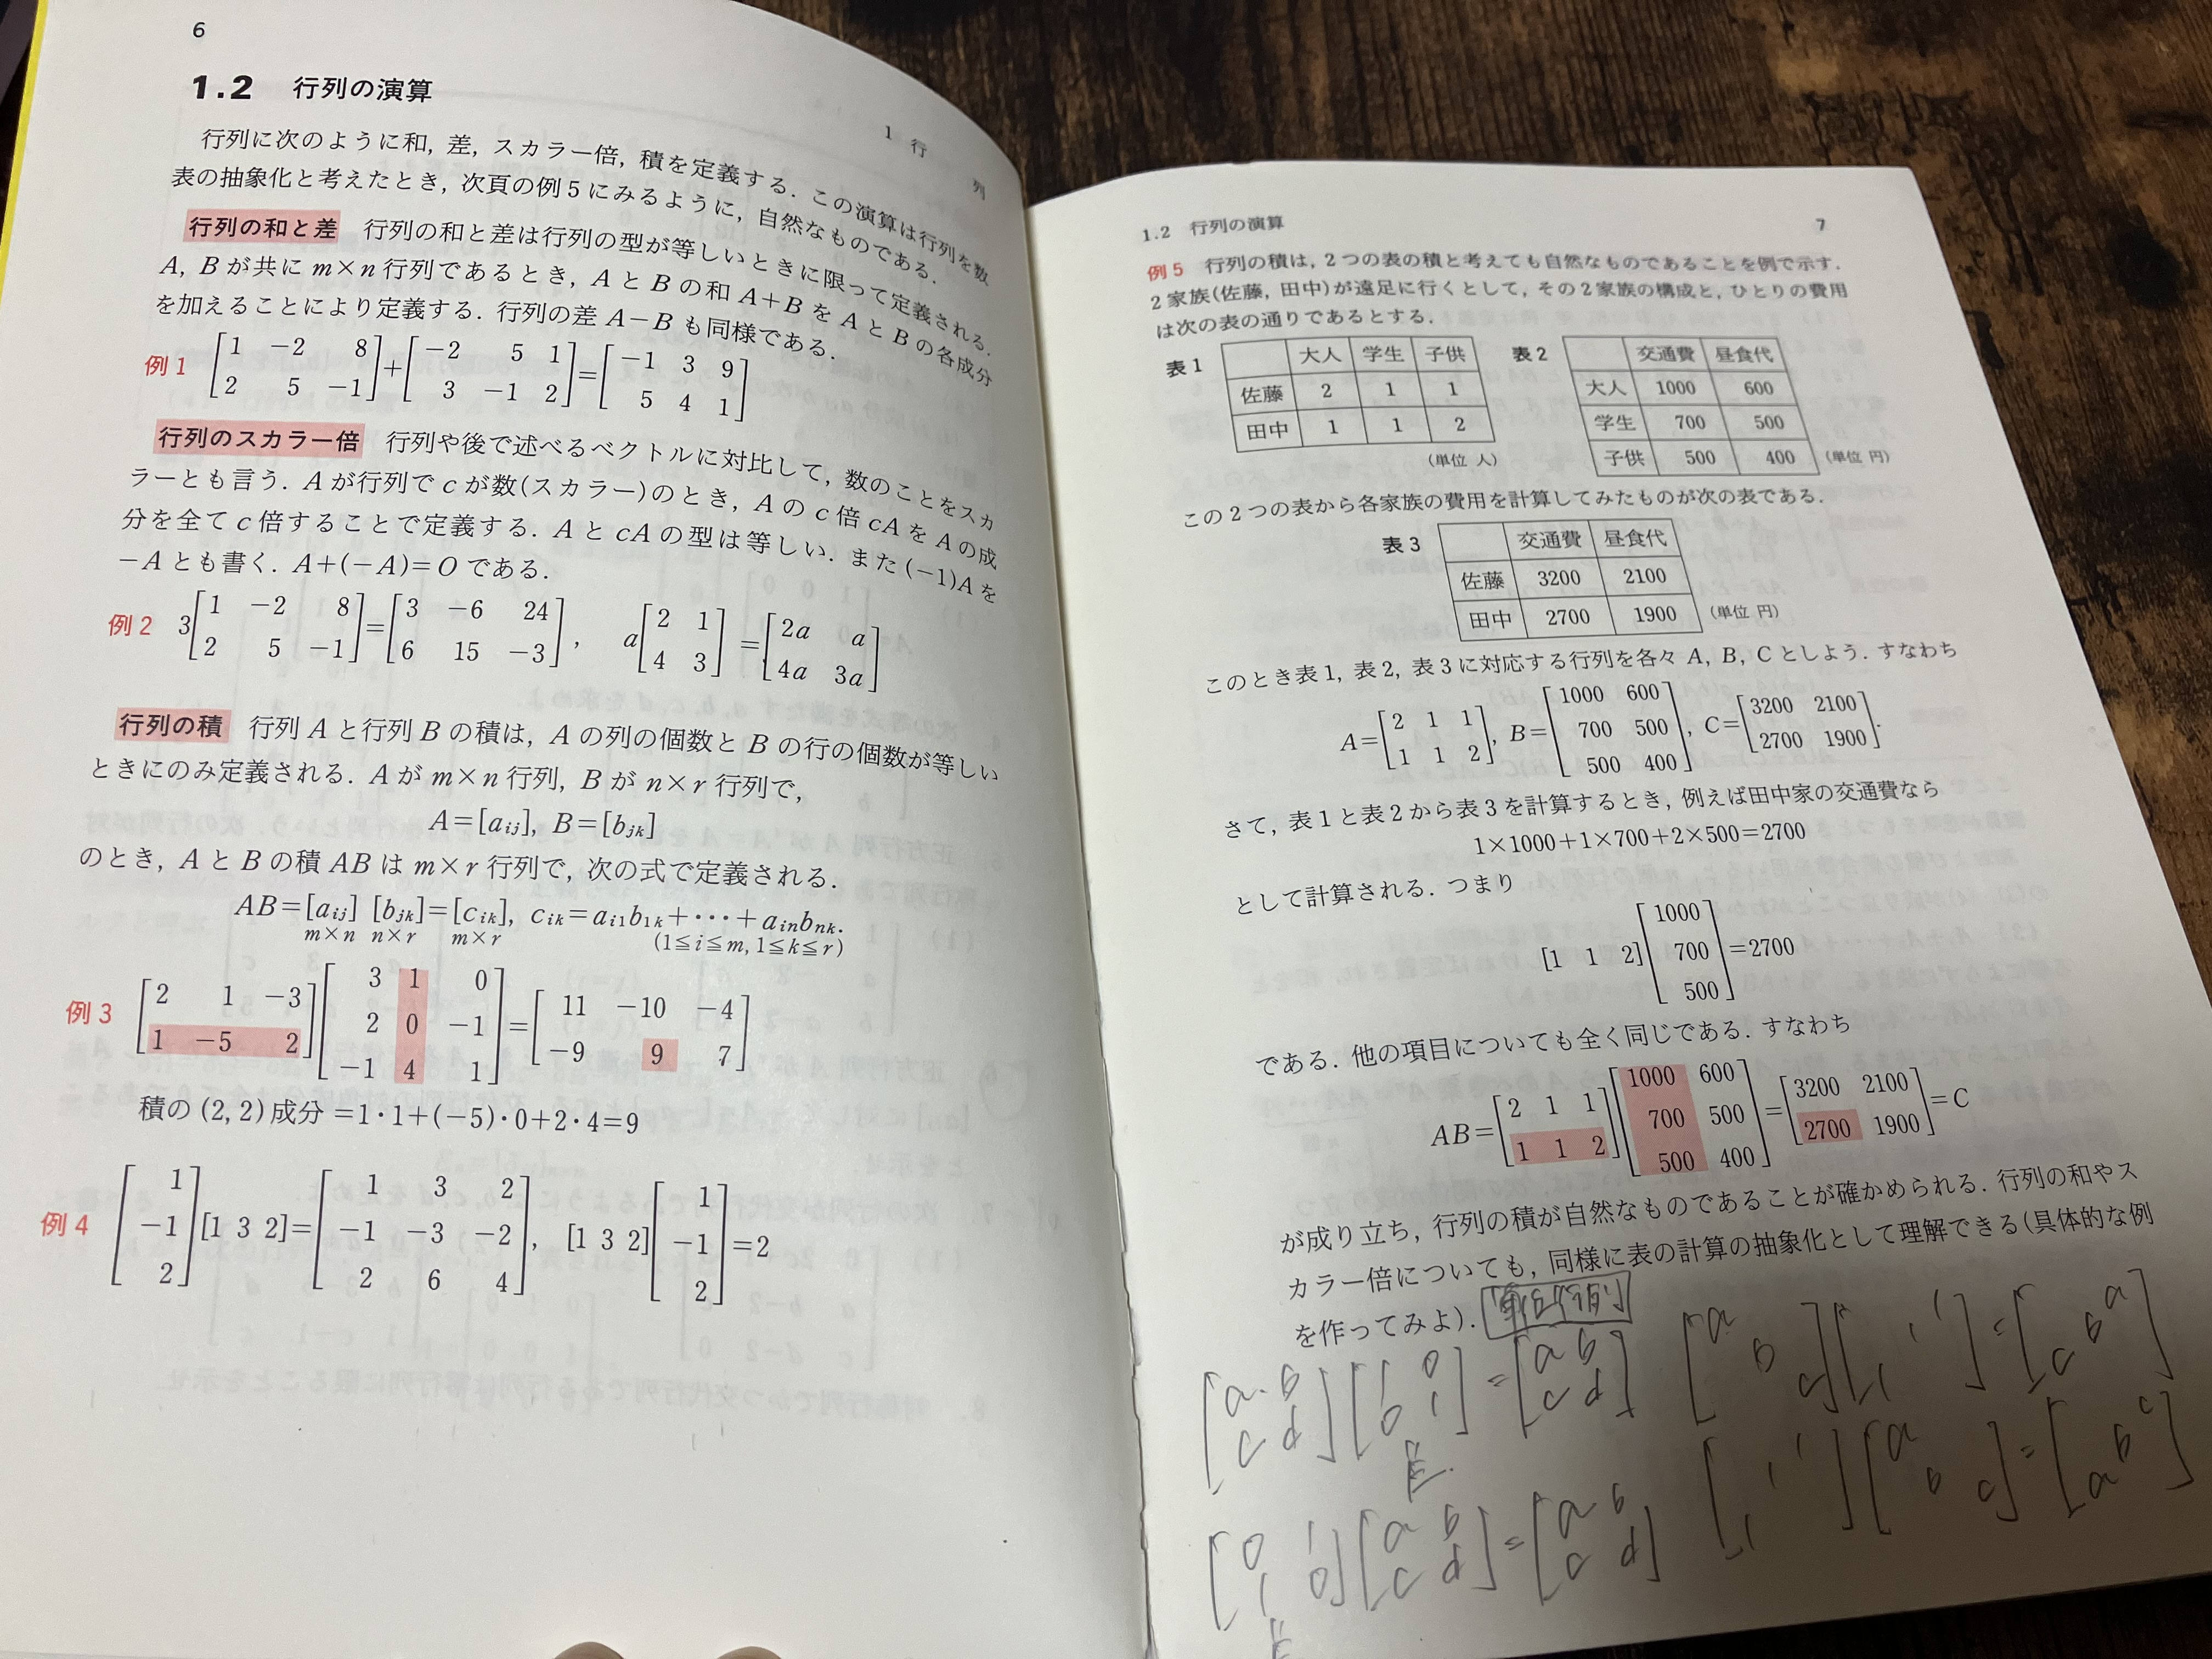 6
1 行
1.2 行列の演算
行列に次のように和, 差, スカラー倍, 積を定義する. この演算は行列を数
表の抽象化と考えたとき, 次頁の例5にみるように, 自然なものである.
行列の和と差 行列の和と差は行列の型が等しいときに限って定義される.
A, B が共に m×n 行列であるとき, A と B の和 A+B を A と B の各成分
を加えることにより定義する. 行列の差 A−B も同様である.
例1 [1 −2 8
2 5 −1]+[−2 5 1
3 −1 2]=[−1 3 9
5 4 1]
行列のスカラー倍 行列や後で述べるベクトルに対比して, 数のことをスカ
ラーとも言う. A が行列で c が数(スカラー)のとき, A の c 倍 cA を A の成
分を全て c 倍することで定義する. A と cA の型は等しい. また (−1)A を
−A とも書く. A+(−A)=O である.
例2 3[1 −2 8
2 5 −1]=[3 −6 24
6 15 −3], a[2 1
4 3]=[2a a
4a 3a]
行列の積 行列 A と行列 B の積は, A の列の個数と B の行の個数が等しい
ときにのみ定義される. A が m×n 行列, B が n×r 行列で,
A=[aij], B=[bjk]
のとき, A と B の積 AB は m×r 行列で, 次の式で定義される.
AB=[aij] [bjk]=[cik], cik=ai1b1k+⋯+ainbnk.
m×n n×r m×r (1≦i≦m, 1≦k≦r)
例3 [2 1 −3
1 −5 2][3 1 0
2 0 −1
−1 4 1]=[11 −10 −4
−9 9 7]
積の (2, 2) 成分 =1・1+(−5)・0+2・4=9
例4 [1
−1
2][1 3 2]=[1 3 2
−1 −3 −2
2 6 4], [1 3 2][1
−1
2]=2
1.2 行列の演算 7
例5 行列の積は, 2つの表の積と考えても自然なものであることを例で示す.
2家族(佐藤, 田中)が遠足に行くとして, その2家族の構成と, ひとりの費用
は次の表の通りであるとする.
表1
大人 学生 子供
佐藤 2 1 1
田中 1 1 2
(単位 人)
表2
交通費 昼食代
大人 1000 600
学生 700 500
子供 500 400
(単位 円)
この2つの表から各家族の費用を計算してみたものが次の表である.
表3
交通費 昼食代
佐藤 3200 2100
田中 2700 1900
(単位 円)
このとき表1, 表2, 表3に対応する行列を各々 A, B, C としよう. すなわち
A=[2 1 1
1 1 2], B=[1000 600
700 500
500 400], C=[3200 2100
2700 1900].
さて, 表1と表2から表3を計算するとき, 例えば田中家の交通費なら
1×1000+1×700+2×500=2700
として計算される. つまり
[1 1 2][1000
700
500]=2700
である. 他の項目についても全く同じである. すなわち
AB=[2 1 1
1 1 2][1000 600
700 500
500 400]=[3200 2100
2700 1900]=C
が成り立ち, 行列の積が自然なものであることが確かめられる. 行列の和やス
カラー倍についても, 同様に表の計算の抽象化として理解できる(具体的な例
を作ってみよ).